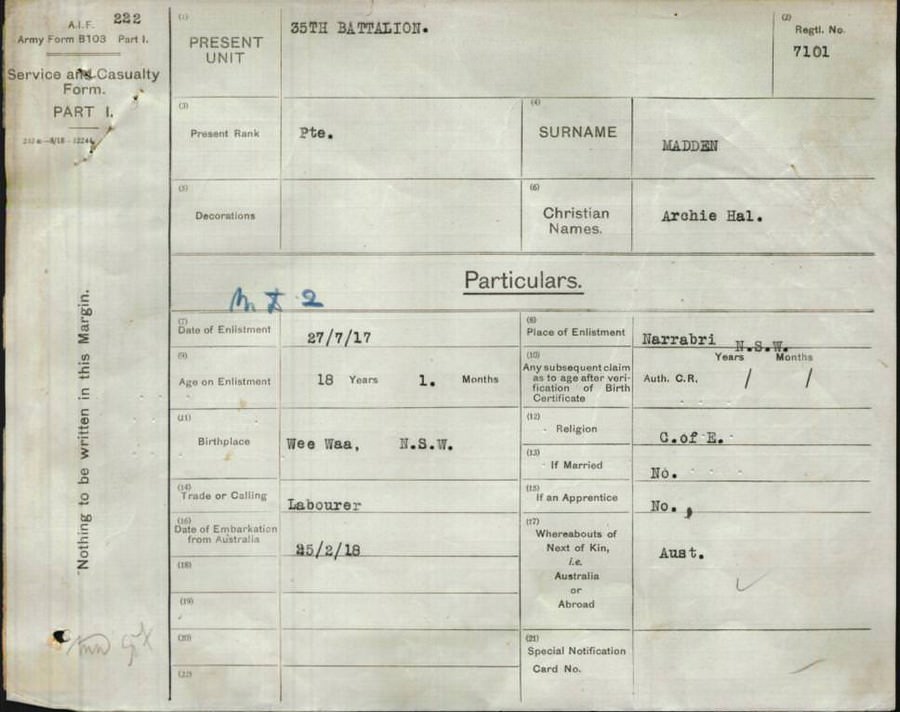 A.I.F. 222
Army Form B103 Part I.
Service and Casualty
Form.
PART I.
Nothing to be written in this Margin.
(1)
PRESENT
UNIT
35TH BATTALION.
(2)
Regtl. No.
7101
(3)
Present Rank
Pte.
(4)
SURNAME
MADDEN
(5)
Decorations
(6)
Christian
Names.
Archie Hal.
Particulars.
(7)
Date of Enlistment
27/7/17
(8)
Place of Enlistment
Narrabri N.S.W.
(9)
Age on Enlistment
18 Years 1. Months
(10)
Any subsequent claim
as to age after veri-
fication of Birth
Certificate
Years Months
Auth. C.R. / /
(11)
Birthplace
Wee Waa, N.S.W.
(12)
Religion
C.of E.
(13)
If Married
No.
(14)
Trade or Calling
Labourer
(15)
If an Apprentice
No.,
(16)
Date of Embarkation
from Australia
25/2/18
(17)
Whereabouts of
Next of Kin,
i.e.
Australia
or
Abroad
Aust.
(18)
(19)
(20)
(21)
Special Notification
Card No.
(22)